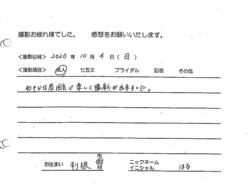 撮影お疲れ様でした。 感想をお願いいたします。
<撮影日時> 2020年 10月 4日 (日)
<撮影項目> 成人 七五三 ブライダル 記念 その他
和やかな雰囲気で楽しく撮影が出来ました。
お住まい 利根
ニックネーム
イニシャル はる